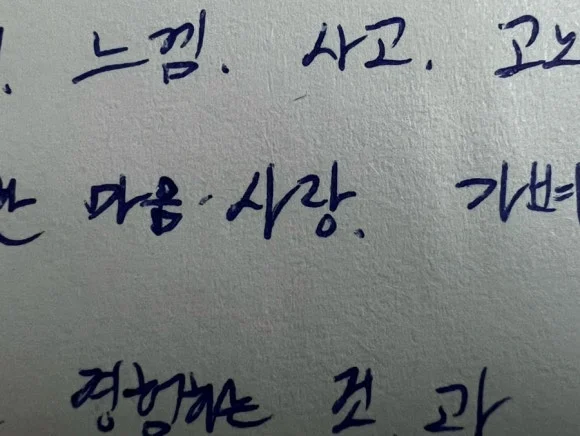 . 느낌. 사고. 고노
한 마음·사랑. 가벼
경험하는 것 과